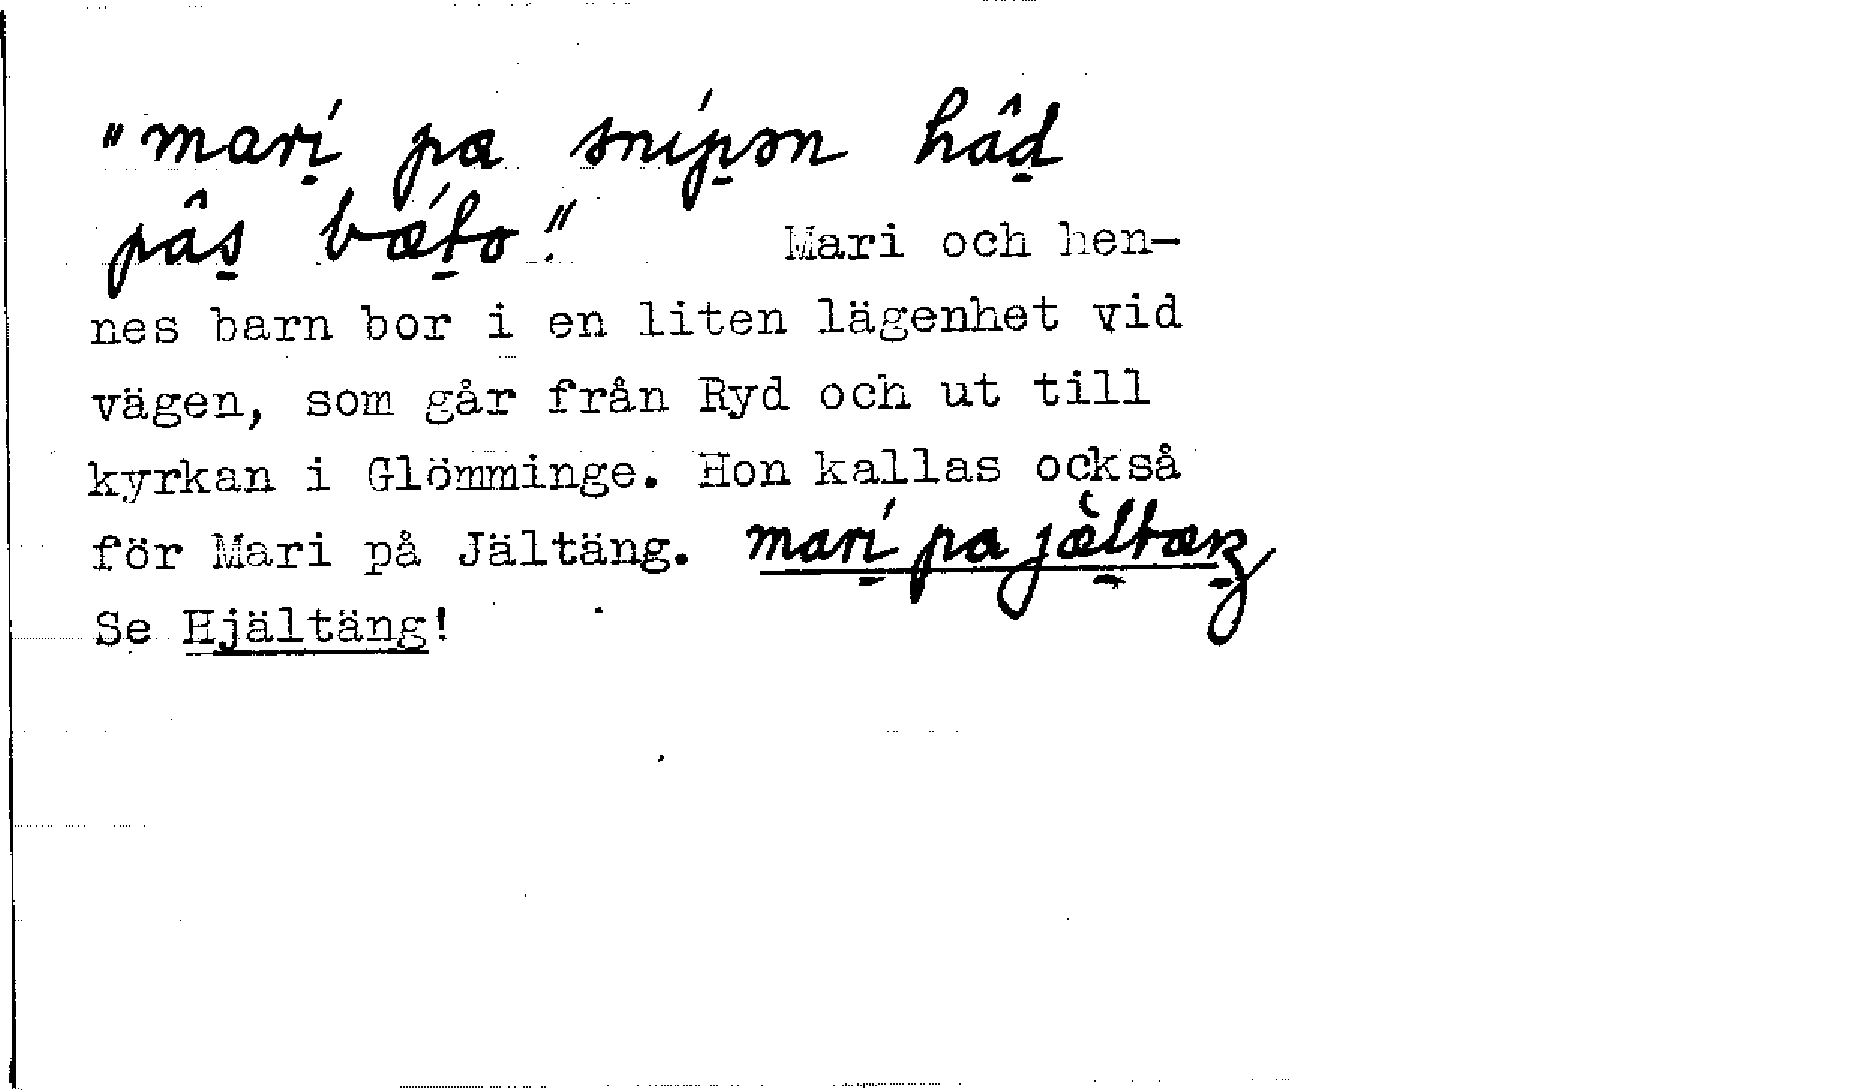 "marí pa snípən hâd
pâs bǽto." Mari och hen-
nes barn bor i en liten lägenhet vid
vägen, som går från Ryd och ut till
kyrkan i Glömminge. Hon kallas också
för Mari på Jältäng. marí pa jæ̀ltæŋ
Se Hjältäng!